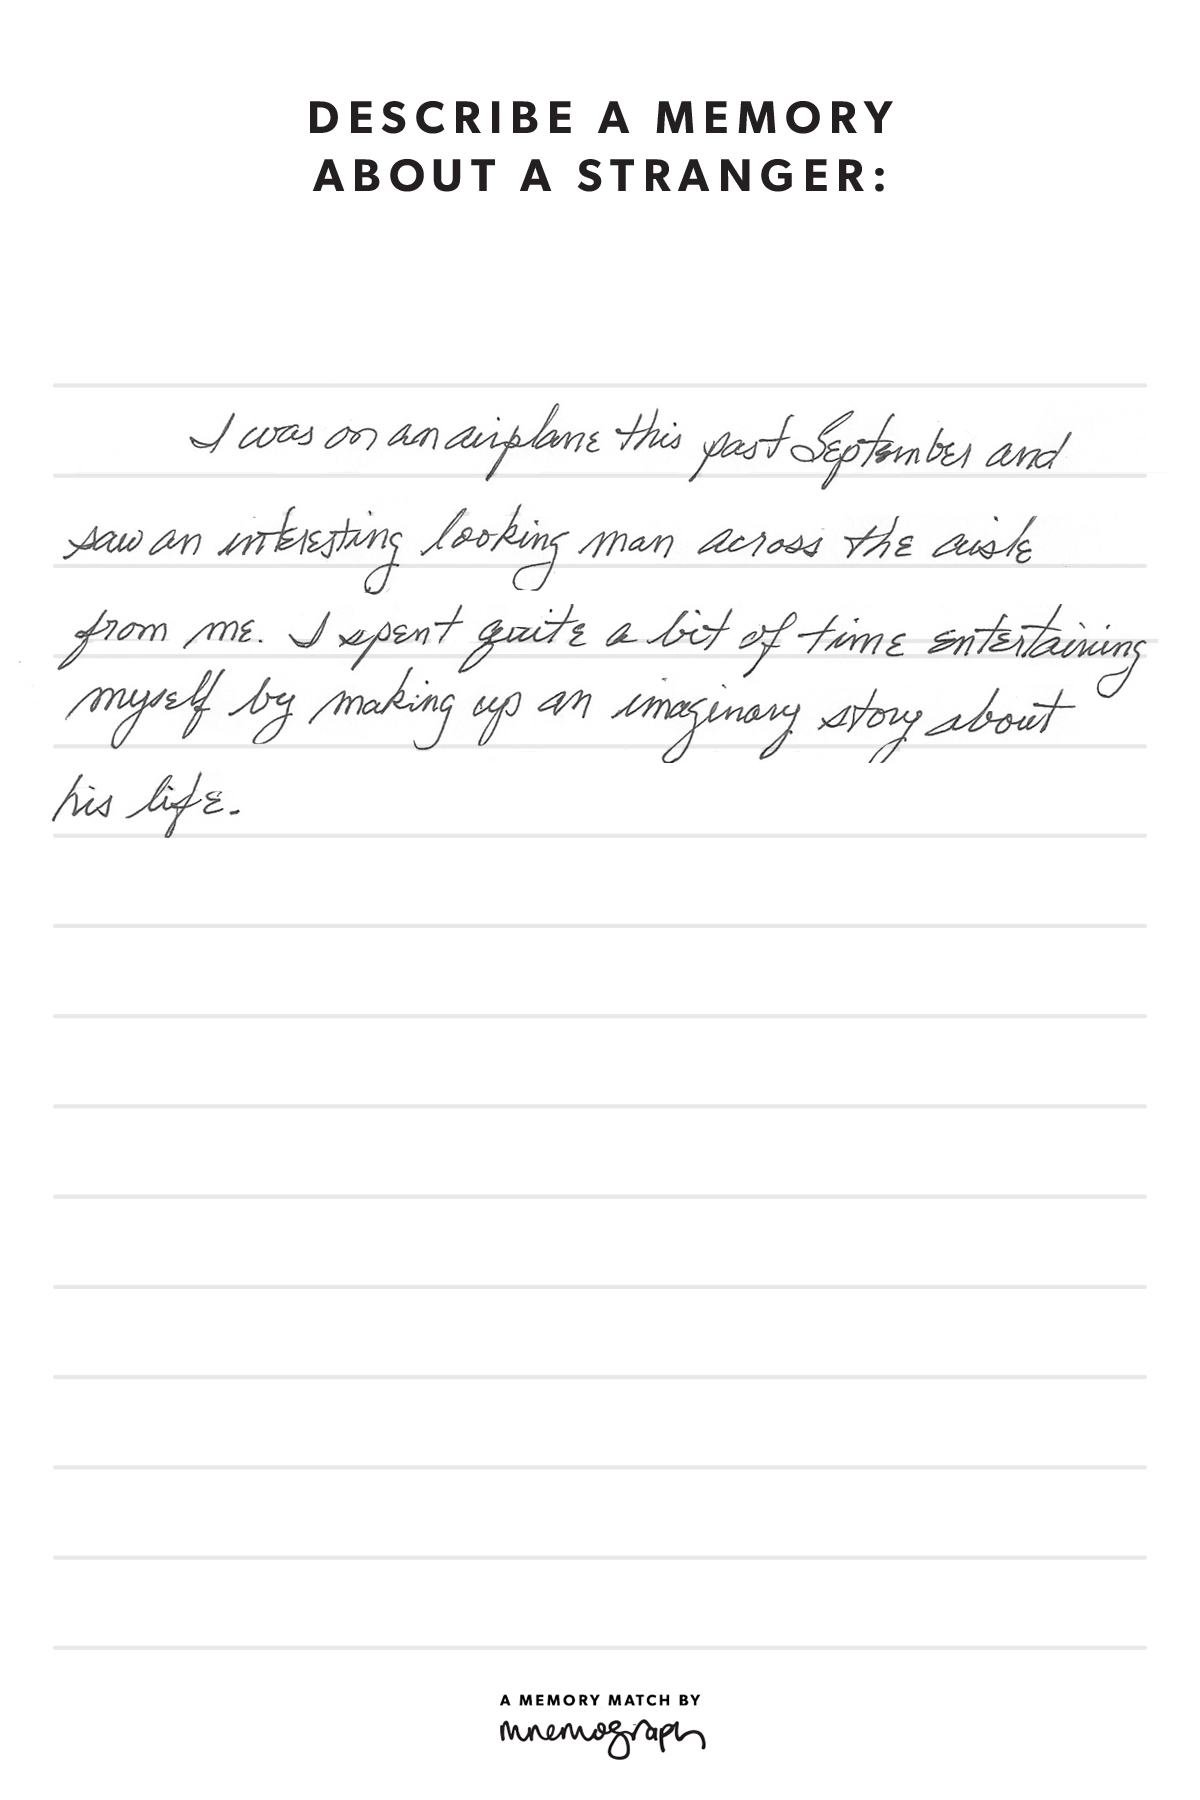 DESCRIBE A MEMORY
ABOUT A STRANGER:
I was on an airplane this past September and
saw an interesting looking man across the aisle
from me. I spent quite a bit of time entertaining
myself by making up an imaginary story about
his life.
A MEMORY MATCH BY
mnemograph